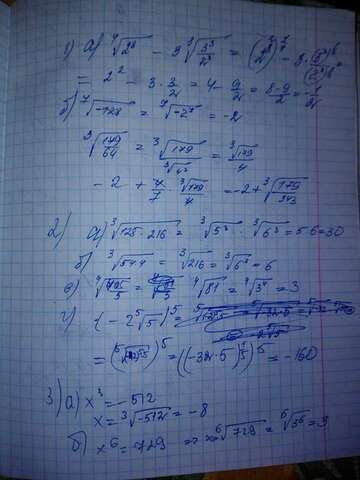 1) а) ⁴√2⁸ - 3 ³√(3³/2³) = (2⁸)^(1/4) - 3 ·
= 2² - 3 · 3/2 = 4 - 9/2 = (8-9)/2 = -1/2
б) ⁷√-128 = ⁷√-2⁷ = -2
³√(179/64) = ³√179/³√4³ = ³√179/4
-2 + 4/7 · ³√179/4 = -2 + ³√(179/343)
2) а) ³√125·216 = ³√5³ · ³√6³ = 5·6 = 30
б) ³√54·4 = ³√216 = ³√6³ = 6
в) ⁴√81 = ⁴√3⁴ = 3
г) (-2 ⁵√5)⁵ =
= ((-32·5)^(1/5))⁵ = -160
3) а) x³ = -512
x = ³√-512 = -8
б) x⁶ = 729 ⇒ ⁶√729 = ⁶√3⁶ = 3